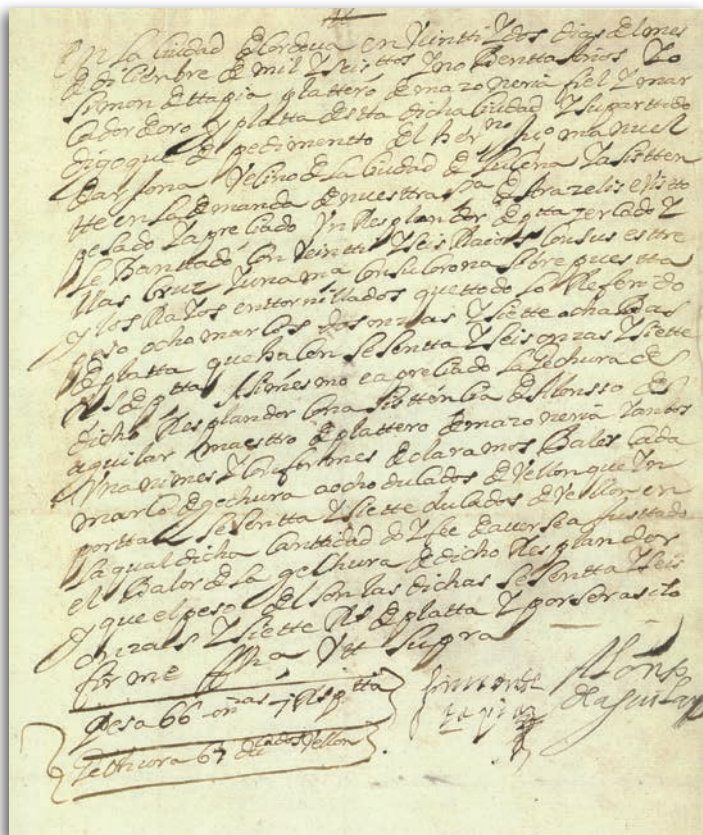 En La Ciudad de Cordova en Veintti Y dos dias del mes
de diciembre de mil Y seisttos Y nobentta Años Yo
simon de ttapia plattero de mazoneria fiel Y mar
cador de oro Y platta de stta dicha Ciudad Y su parttido
digo que de pedimentto del herno Juo manuel
Vecino de la Ciudad de Lucena Y asistten
tte en La demanda de nuesttra sra de Arazelis e Vistto
pesado Y apreciado Vn Resplandor de ptta zercado Y
Con Veintti Y seis Raios Con sus esttre
llas Cruz Y una ma Con su Corona sobre puestta
Y los RaYos enttornillados que ttodo Lo Referido
peso ocho marcos dos onzas Y siette ochabas
de platta que hacen sesentta Y seis onzas Y siette
Rs de ptta Asimesmo e apreciado La gechura de
dicho Resplandor Con asisttencia de Alonsso de
aguilar maestro de plattero de mazoneria Y anbos
Vnanimes Y Conformes declaramos Baler Cada
marco de gechura a ocho ducados de Vellon que Yn
portta sesentta Y siette ducados de Vellon en
La qual dicha Canttidad doY fee de averse ajusttado
el Balor de La gechura de dicho Resplandor
Y que el peso del son las dichas sesentta Y seis
onzas Y siette Rs de platta Y por ser asi lo
firme ffha Vtt supra
pesa 66 onzas 7 Rs ptta
simon de
tapia
Alonso
de aguilar
gechura 67 ducados Vellon